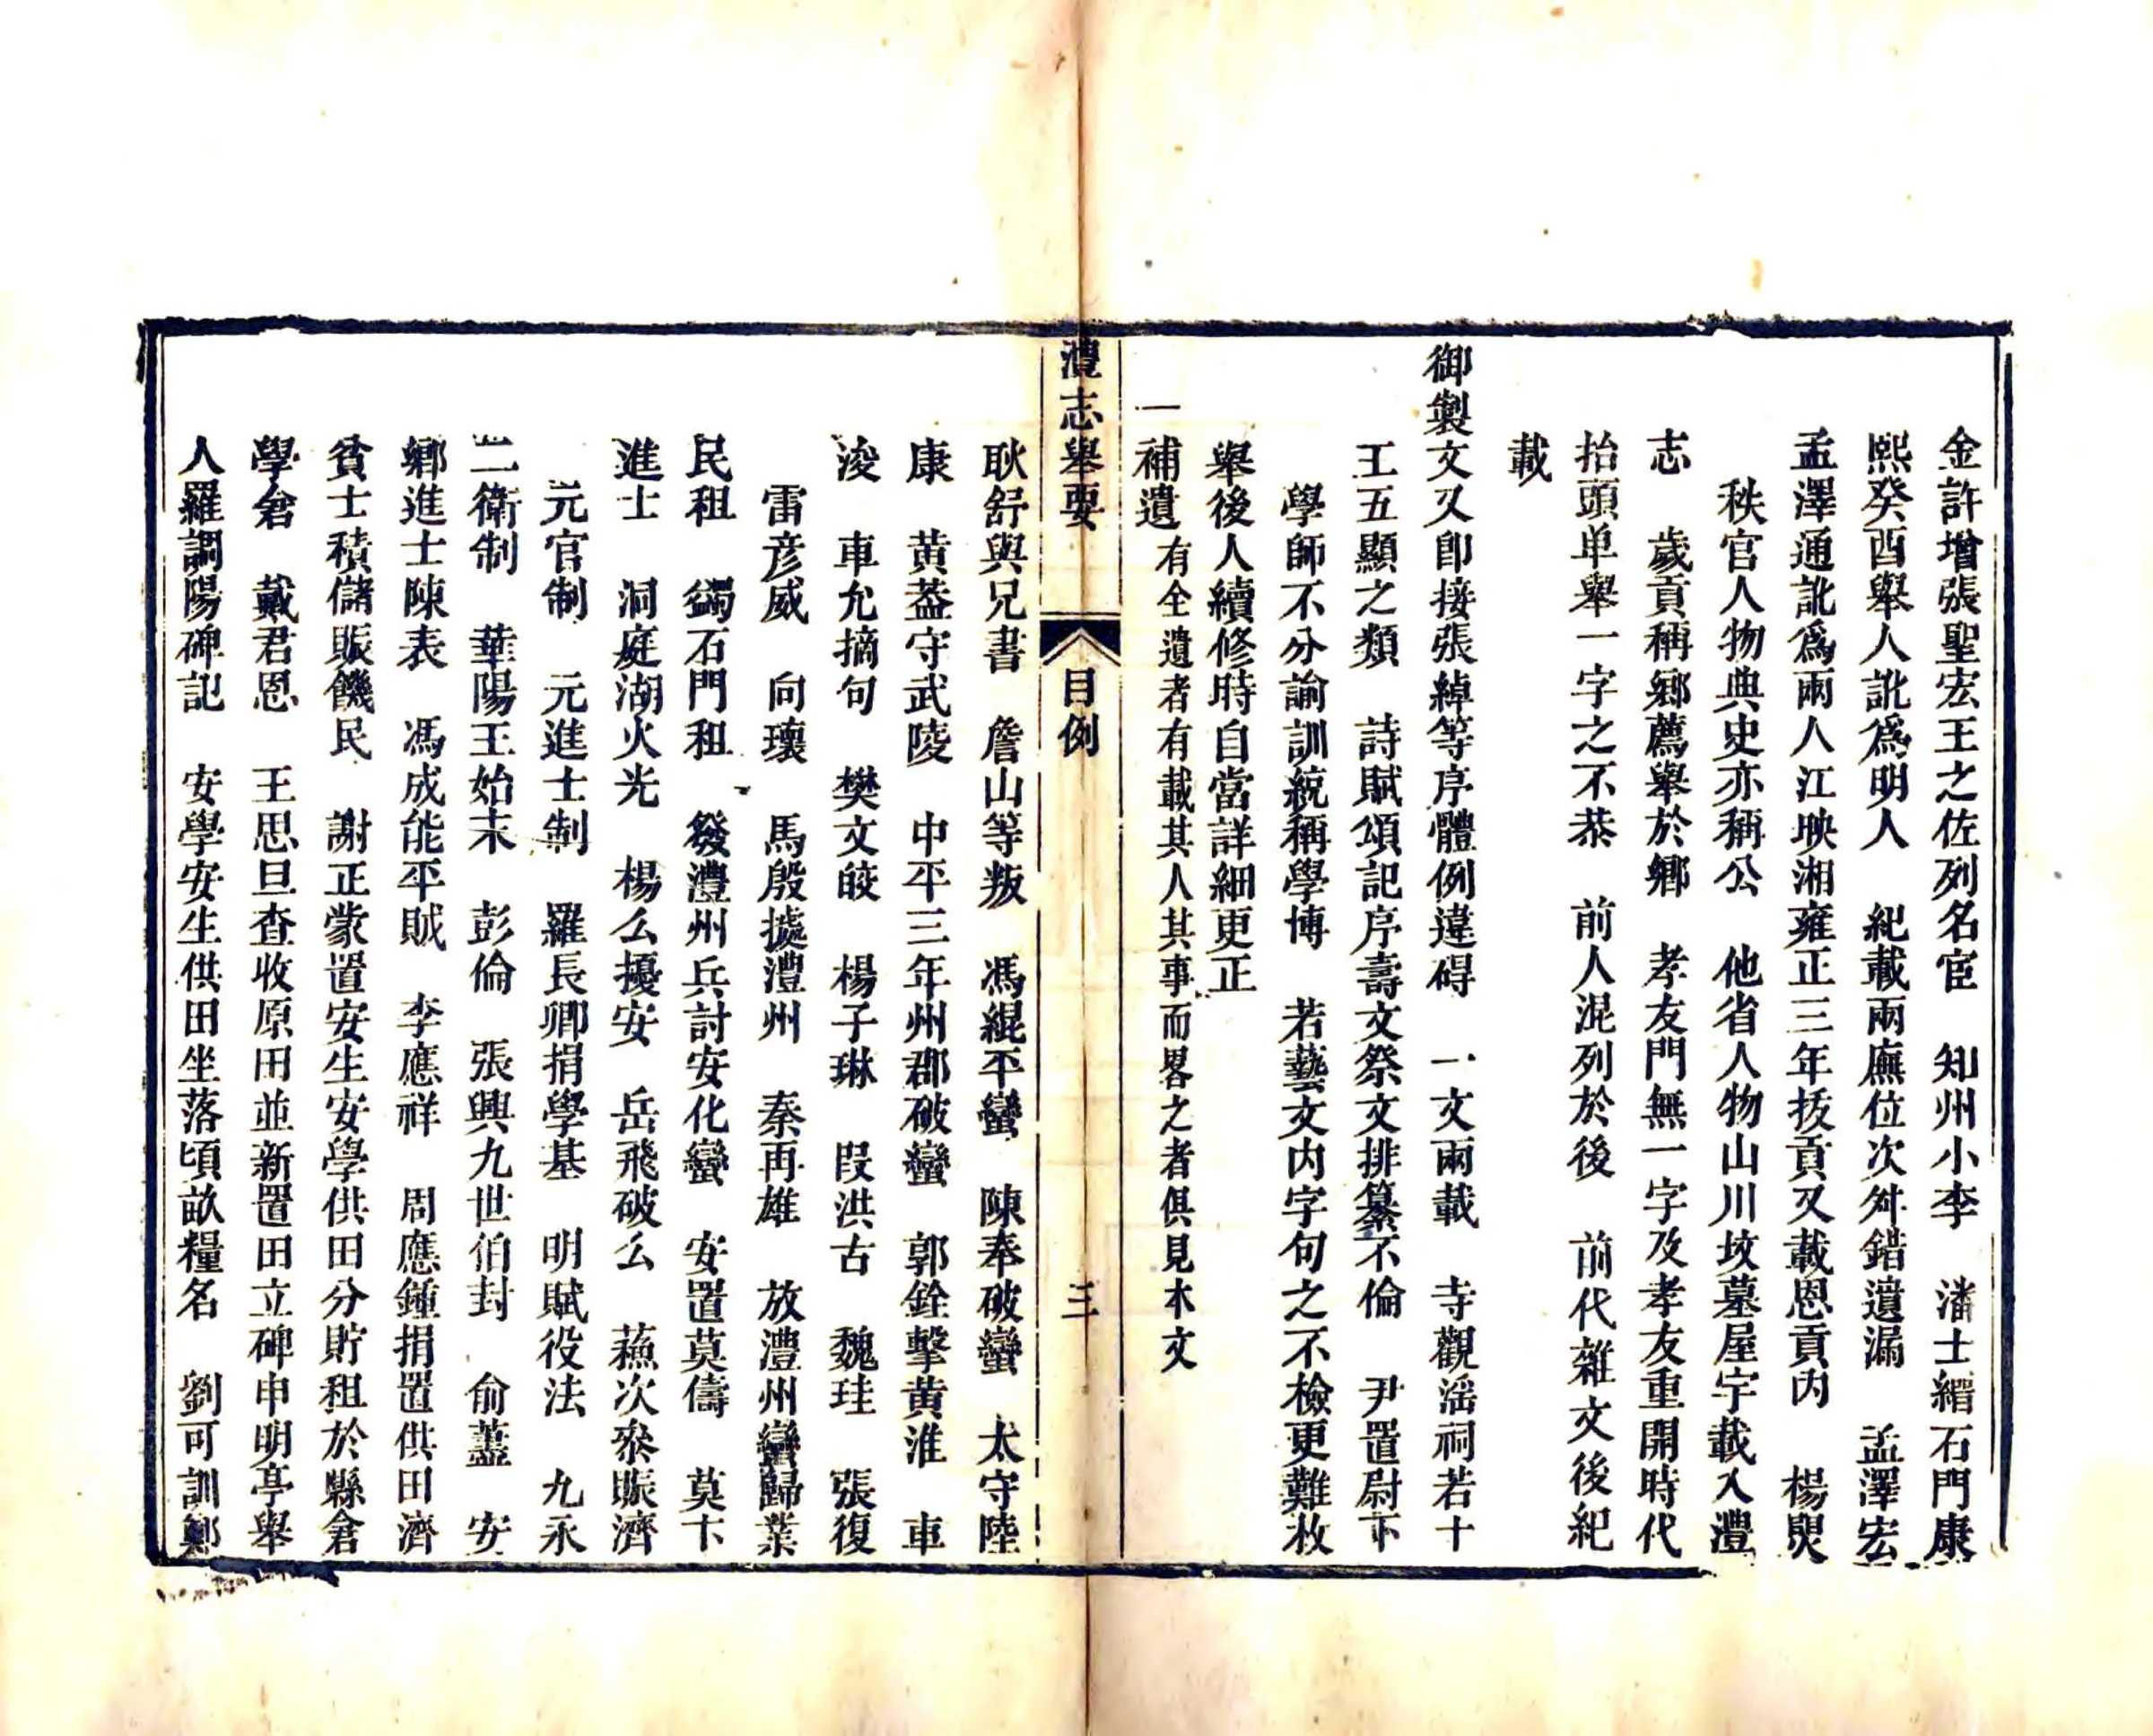 金許增張聖宏王之佐列名宦　知州小李　潘士縉石門康
熙癸酉舉人訛爲明人　紀載兩廡位次舛錯遺漏　孟澤宏
孟澤通訛爲兩人江映湘雍正三年拔貢又載恩貢內　楊㷼
秩官人物典史亦稱公　他省人物山川坟墓屋宇載入澧
志　歲貢稱鄕薦舉於鄕　孝友門無一字及孝友重開時代
抬頭单舉一字之不恭　前人混列於後　前代雜文後紀
載
御製文又卽接張綽等序體例違碍　一文兩載　寺觀滛祠若十
王五顯之類　詩賦頌記序壽文祭文排纂不倫　尹置尉下
學師不分諭訓統稱學博　若藝文内字句之不檢更難枚
舉後人續修時自當詳細更正
一補遺有全遺者有載其人其事而畧之者俱見本文
澧志舉要　目例　三
耿舒與兄書　詹山等叛　馮緄平蠻　陳奉破蠻　太守陸
康　黃葢守武陵　中平三年州郡破蠻　郭銓擊黄淮　車
浚　車允摘句　樊文皎　楊子琳　段洪古　魏珪　張復
雷彦威　向瓌　馬殷據澧州　秦再雄　放澧州蠻歸業
民租　蠲石門租　發澧州兵討安化蠻　安置莫儔　莫卞
進士　洞庭湖火光　楊么擾安　岳飛破么　蘓次叅賑濟
元官制　元進士制　羅長卿捐學基　明賦役法　九永
二衛制　華陽王始末　彭倫　張興九世伯封　俞藎　安
鄕進士陳表　馮成能平賊　李應祥　周應鍾捐置供田濟
貧士積儲賑饑民　謝正蒙置安生安學供田分貯租於縣倉
學倉　戴君恩　王思旦查收原田並新置田立碑申明亭舉
人羅調陽碑記　安學安生供田坐落頃畝糧名　劉可訓鄭